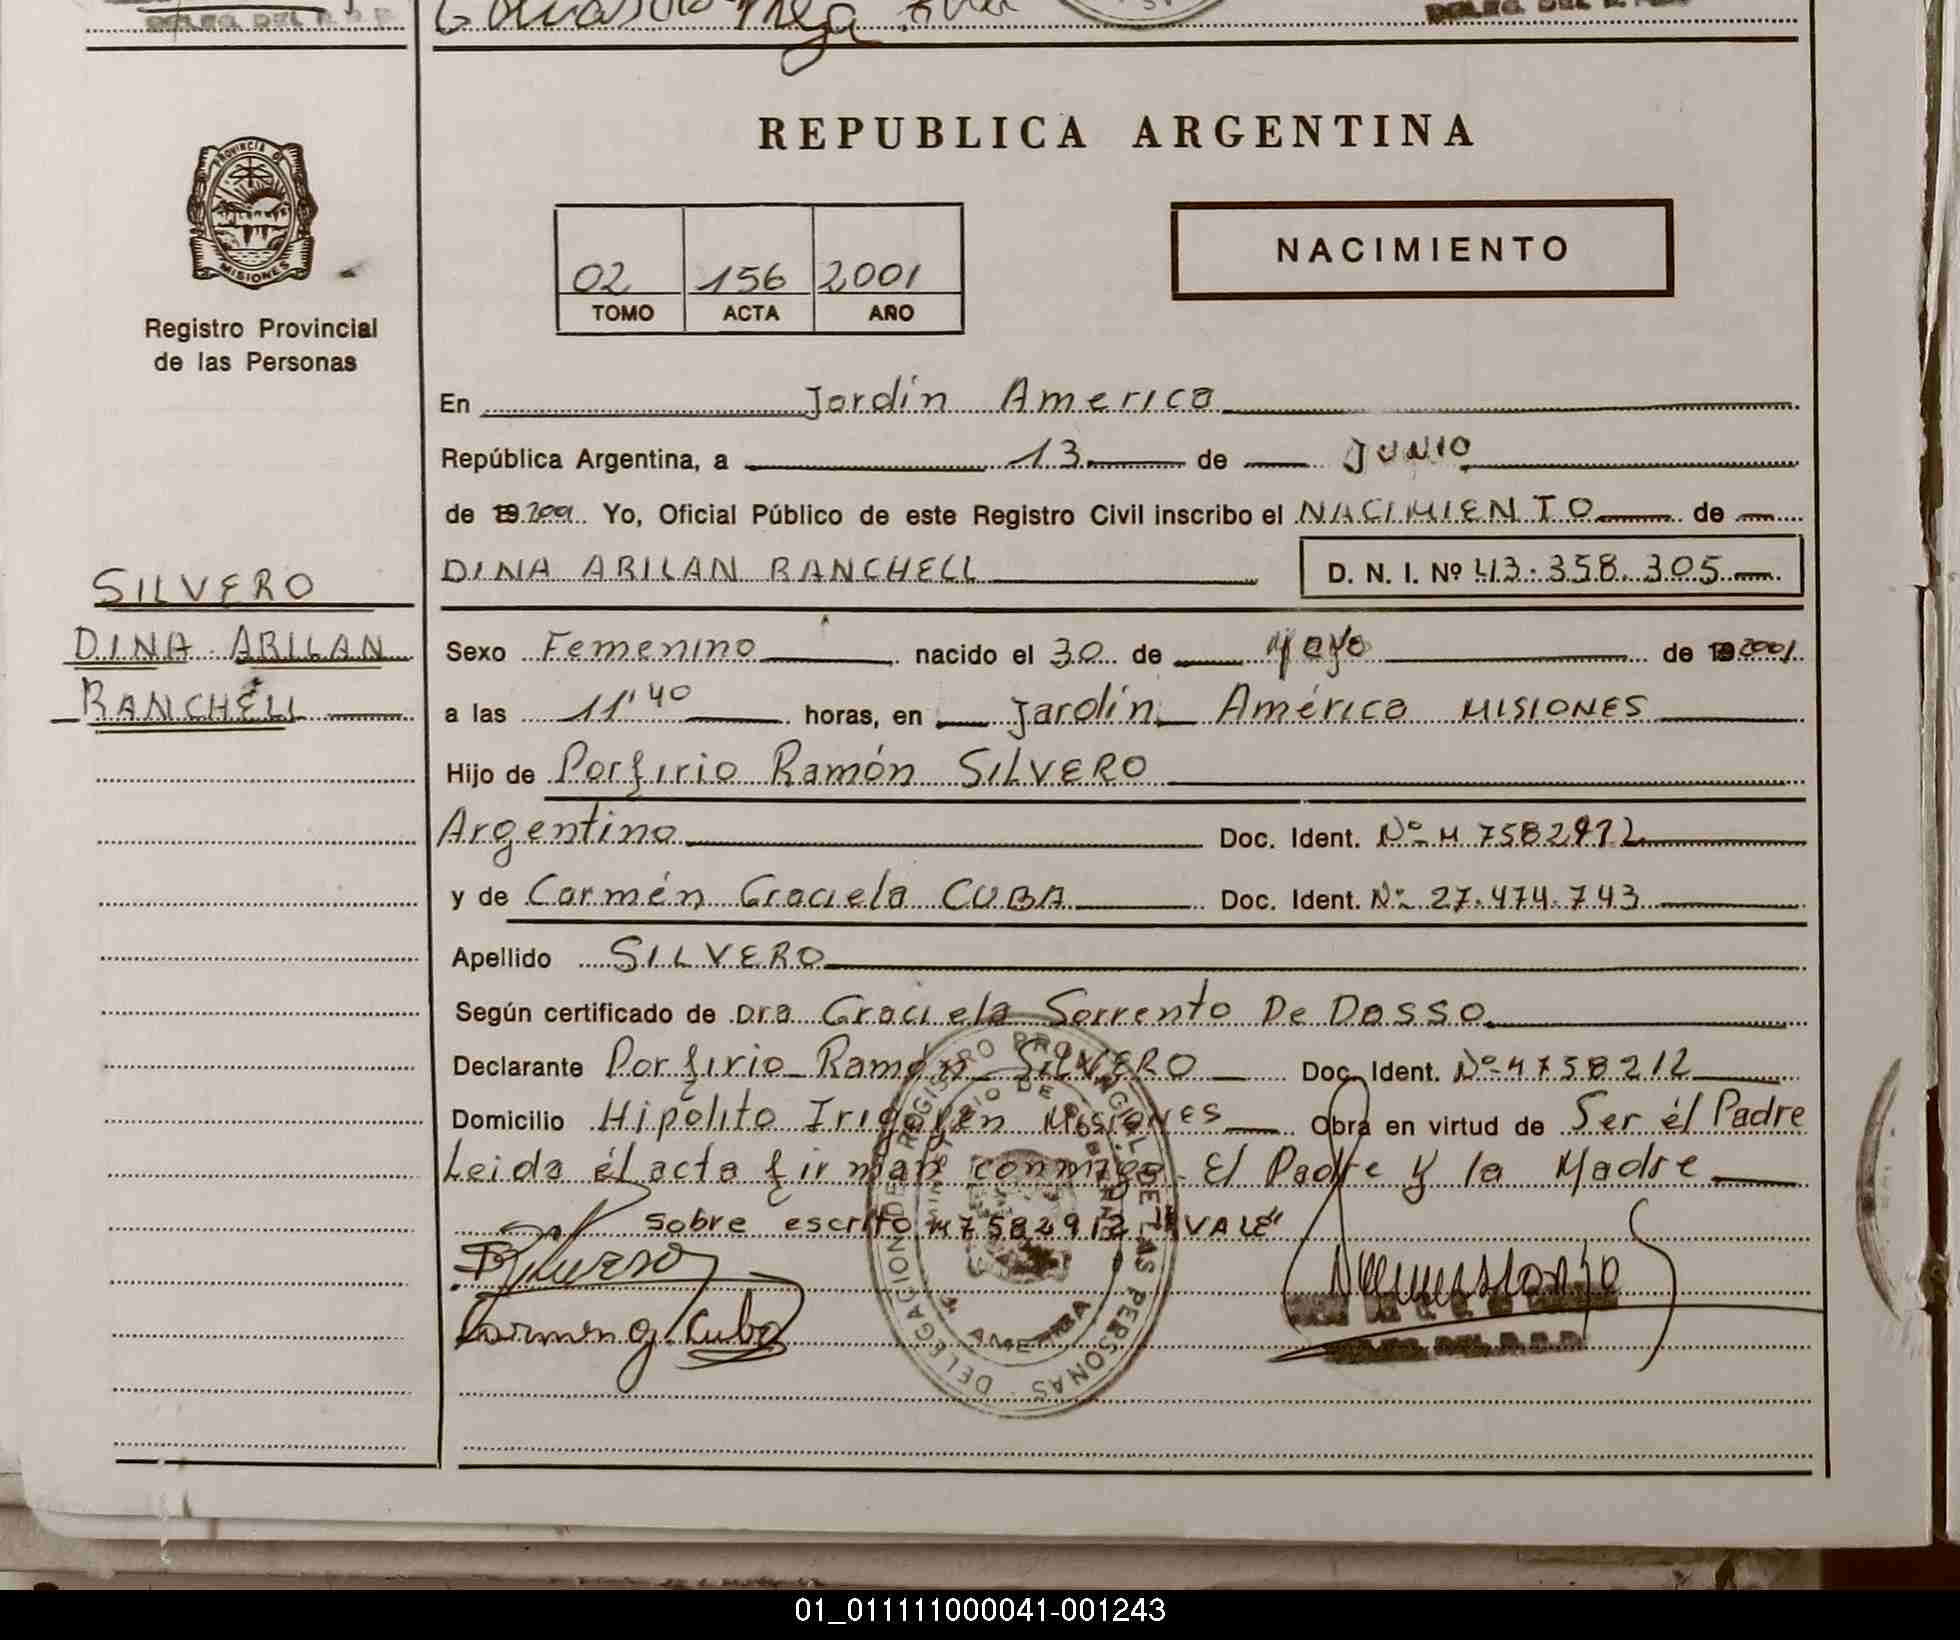 REPUBLICA ARGENTINA
PROVINCIA DE
MISIONES
Registro Provincial
de las Personas
NACIMIENTO
02 156 2001
TOMO ACTA AÑO
En Jardín America
República Argentina, a 13 de JUNIO
de 19 2001 Yo, Oficial Público de este Registro Civil inscribo el NACIMIENTO de
DINA ARILAN RANCHELL D. N. I. Nº 43.358.305
SILVERO
DINA ARILAN
RANCHELL
Sexo Femenino nacido el 30 de Mayo de 19 2001
a las 11'40 horas, en Jardín América MISIONES
Hijo de Porfirio Ramón SILVERO
Argentino Doc. Ident. Nº M 7582912
y de Carmén Graciela CUBA Doc. Ident. Nº 27.474.743
Apellido SILVERO
Según certificado de Dra Graciela Sorrento De Dosso
Declarante Porfirio Ramón SILVERO Doc. Ident. Nº 4758212
Domicilio Hipólito Irigoyen Misiones Obra en virtud de Ser él Padre
Leida él acta firman conmigo El Padre y la Madre
sobre escrito M7582912 "VALE"
Carmen G. Cuba
DELEGACION DE REGISTRO PROVINCIAL DE LAS PERSONAS
01_011111000041-001243